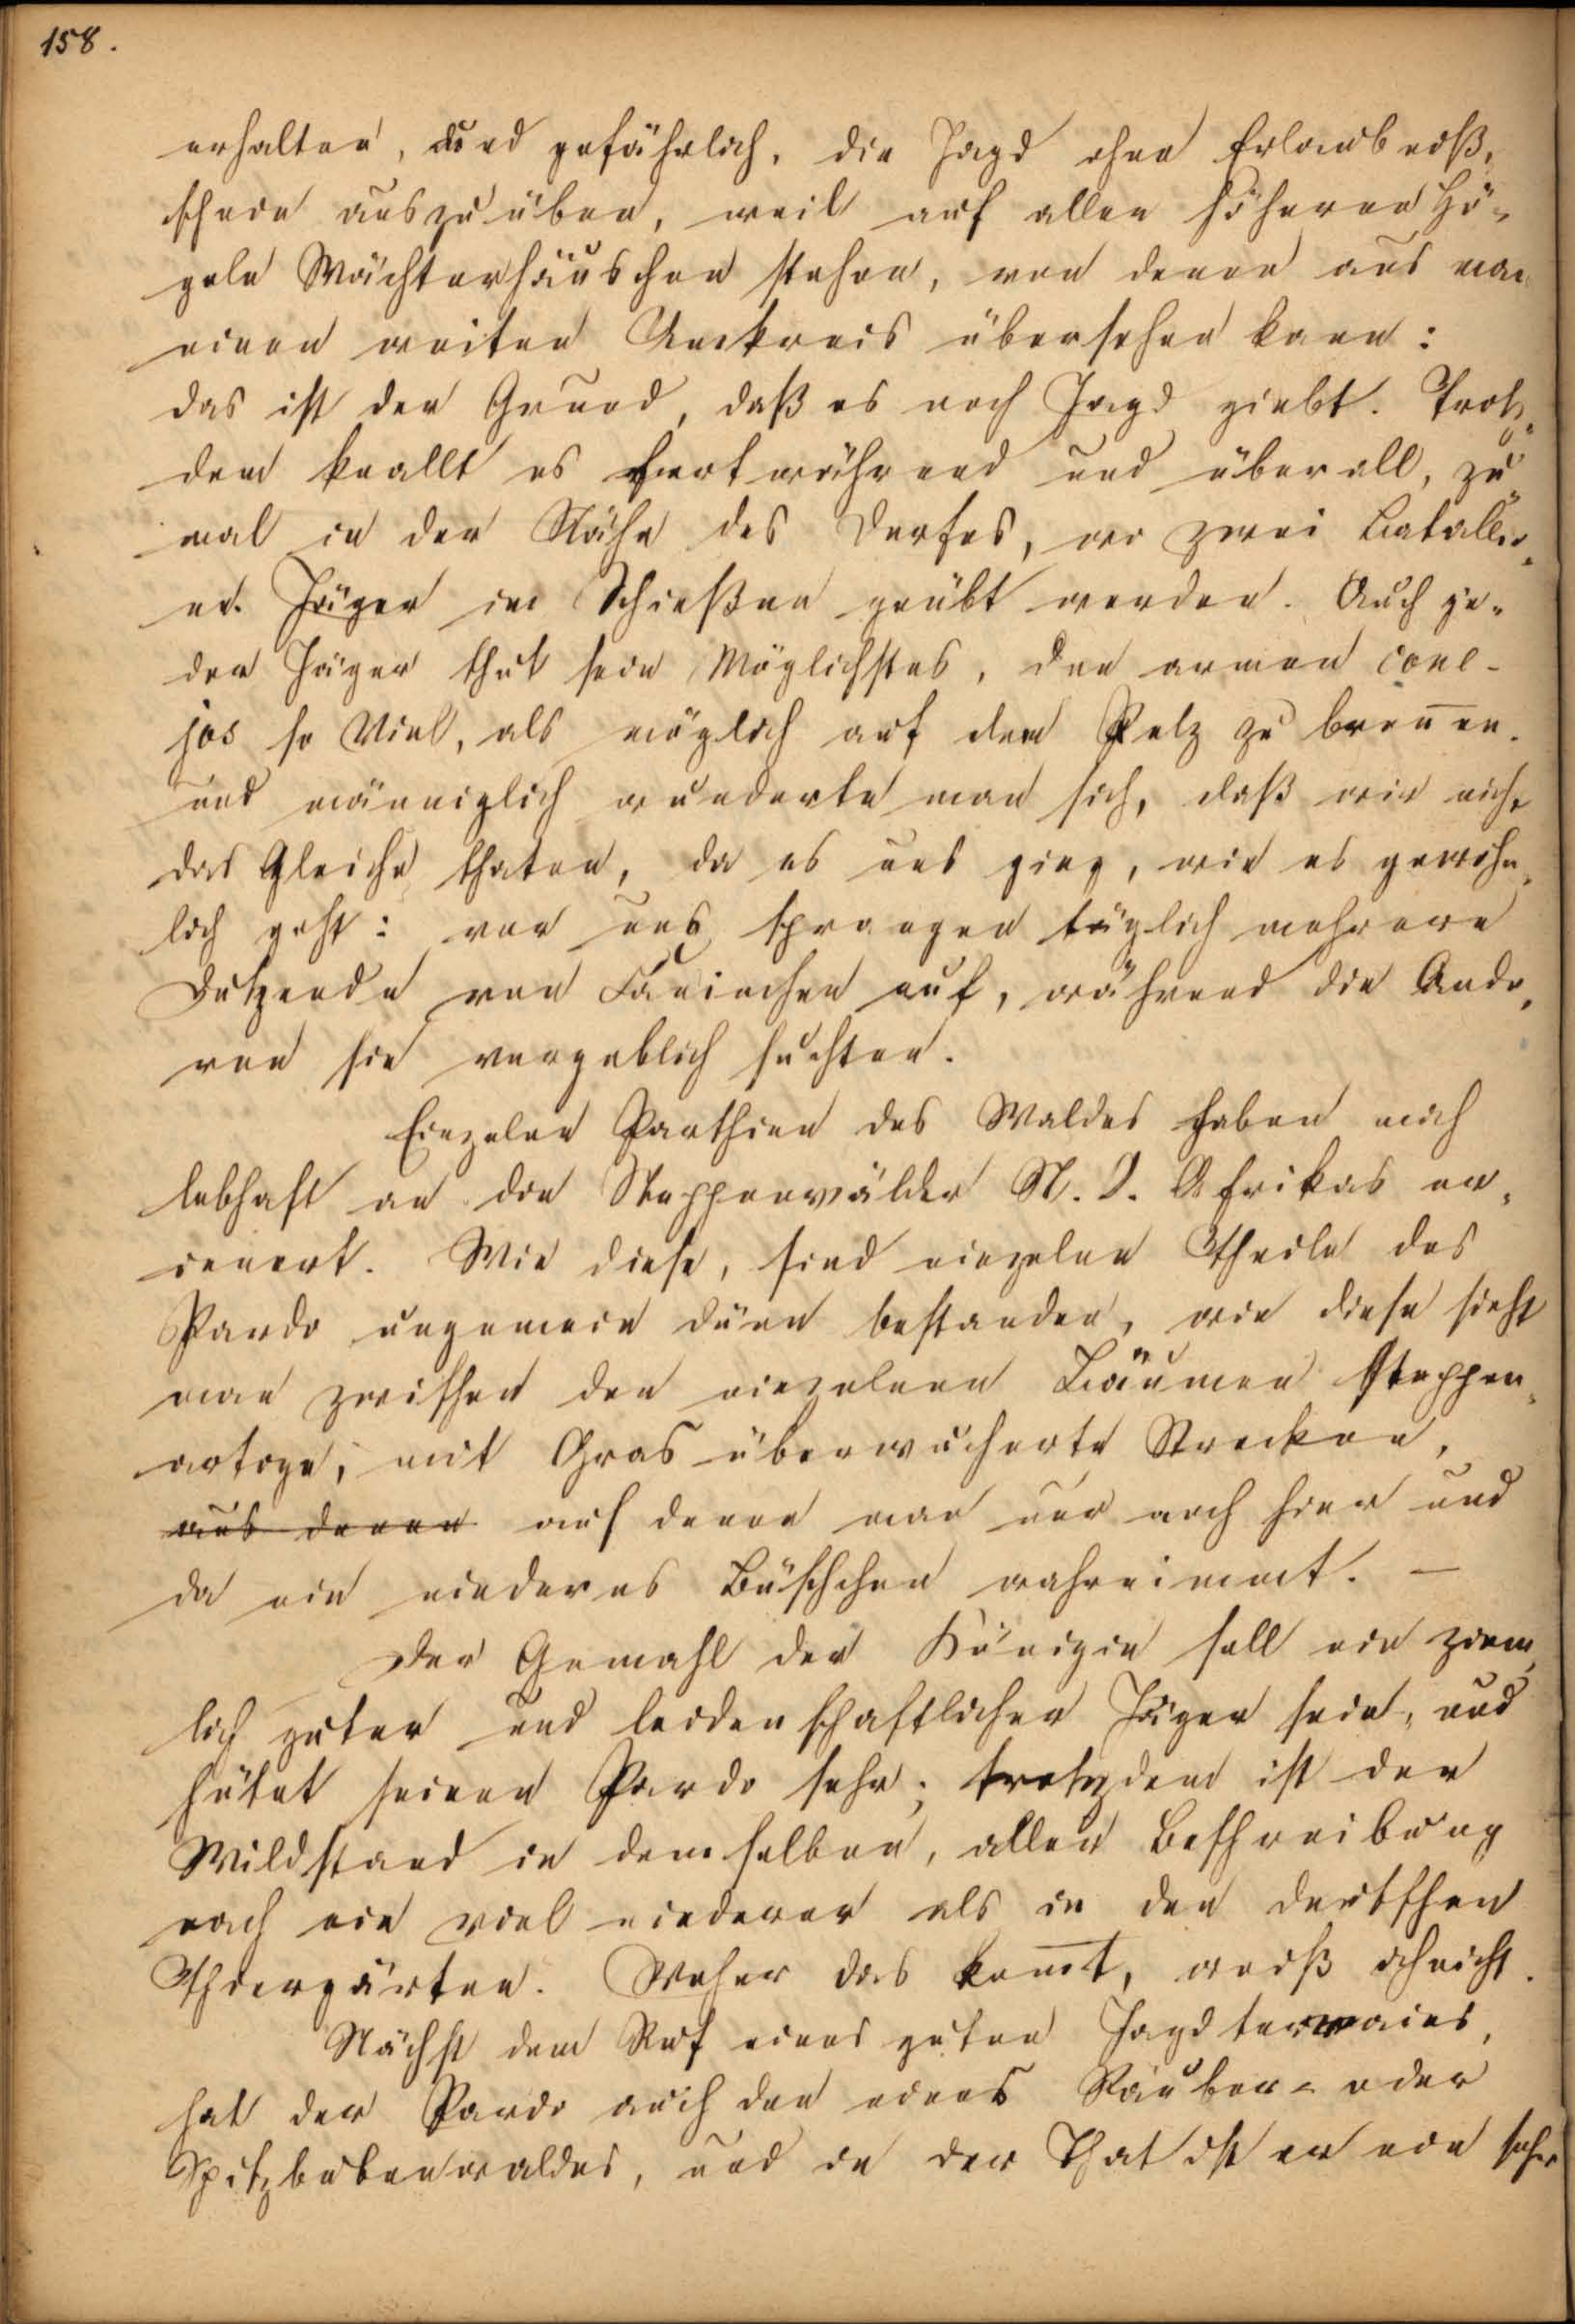 158.
erhalten, und gefährlich, die Jagd ohne Erlaubniß-
schein auszuüben, weil auf allen höheren Hü-
geln Wächterhäuschen stehen, von denen aus man
einen weiten Umkreis übersehen kann:
das ist der Grund, daß es noch Jagd giebt. Trotz-
dem knallt es fortwährend und überall, zu-
mal in der Nähe des Dorfes, wo zwei Batallio-
ne Jäger im Schießen geübt werden. Auch je-
der Jäger thut sein Möglichstes, den armen cone-
jos so Viel, als möglich auf den Pelz zu breñen.
und männiglich wunderte man sich, daß wir nicht
das Gleiche thaten, da es uns ging, wie es gewöhn-
lich geht: vor uns sprangen täglich mehrere
Dutzende von Caninchen auf, während die Ande-
ren sie vergeblich suchten.
Einzelne Parthien des Waldes haben mich
lebhaft an die Steppenwälder N. O. Afrikas er-
innert. Wie diese, sind einzelne Theile des
Pardo ungemein dünn bestanden, wie diese sieht
man zwischen den einzelnen Bäumen Steppen-
artige, mit Gras überwucherte Strecken,
aus denen auf denen man nur noch hier und
da ein niederes Büschchen wahrnimmt. —
Der Gemahl der Königin soll ein ziem-
lich guter und leidenschaftlicher Jäger sein, und
hütet seinen Pardo sehr; trotzdem ist der
Wildstand in demselben, aller Beschreibung
nach ein viel niederer als in den deutschen
Thiergärten. Woher das kom̅t, weiß ich nicht.
Nächst dem Ruf eines guten Jagdterrains,
hat der Pardo auch den eines Räuber- oder
Spitzbubenwaldes, und in der That ist er ein sehr